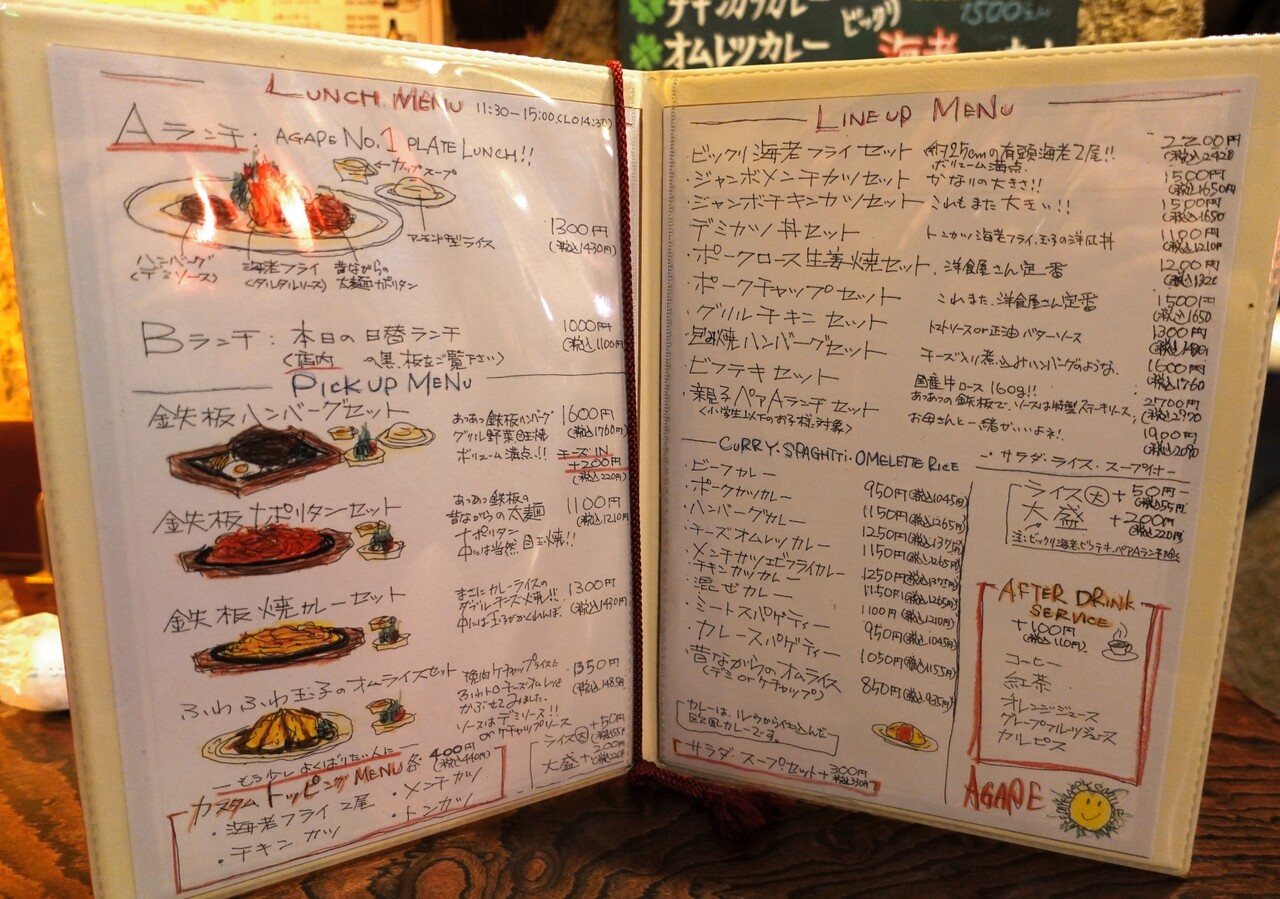 チキンカツカレー
オムレツカレー
ビックリ
海老
LUNCH MENU 11:30-15:00 (L.O14:30)
Aランチ: AGAPE No.1 PLATE LUNCH!!
カップスープ
アーモンド型ライス
ハンバーグ
(デミソース)
海老フライ
(タルタルソース)
昔ながらの
太麺ナポリタン
1300円
(税込1430円)
Bランチ: 本日の日替ランチ
(店内の黒板をご覧下さい)
1000円
(税込1100円)
PICK UP MENU
鉄板ハンバーグセット
あつあつ鉄板ハンバーグ
グリル野菜目玉焼
ボリューム満点!!
1600円
(税込1760円)
チーズIN
+200円
(税込220円)
鉄板ナポリタンセット
あつあつ鉄板の
昔ながらの太麺
ナポリタン
中には当然目玉焼!!
1100円
(税込1210円)
鉄板焼カレーセット
まさにカレーライスの
ダブルチーズ焼!!
中には玉子がかくれんぼ。
1300円
(税込1430円)
ふわふわ玉子のオムライスセット
焼肉ケチャップライスに
ふわトロチーズオムレツを
かぶせてみました。
ソースはデミソース!!
orケチャップソース
1350円
(税込1485円)
もう少しよくばりたい人に
カスタムトッピングMENU 各400円
(税込440円)
・海老フライ2尾
・メンチカツ
・チキンカツ
・トンカツ
ライス(大) +50円
(税込55円)
大盛 +200円
(税込220円)
LINE UP MENU
・ビックリ海老フライセット 約25cmの有頭海老2尾!! 2200円
ボリューム満点 (税込2420)
・ジャンボメンチカツセット かなりの大きさ!! 1500円
(税込1650円)
・ジャンボチキンカツセット これもまた大きい!! 1500円
(税込1650)
・デミカツ丼セット トンカツ海老フライ、玉子の洋風丼 1100円
(税込1210円)
・ポークロース生姜焼セット 洋食屋さん定番 1200円
(税込1320)
・ポークチャップセット これまた、洋食屋さん定番 1500円
(税込1650)
・グリルチキンセット トマトソースor正油バターソース 1300円
・包み焼ハンバーグセット チーズ入り煮込みハンバーグのような。 1600円
(税込1760
・ビフテキセット 国産牛ロース160g!! 2700円
あつあつの鉄板で、ソースは特製ステーキソース。 (税込2970
・親子ペアAランチセット お母さんと一緒がいいよネ! 1900円
(小学生以下のお子様対象) (税込2090
CURRY・SPAGHTTI・OMELETTE RICE
・ビーフカレー 950円(税込1045円)
・ポークカツカレー 1150円(税込1265円)
・ハンバーグカレー 1250円(税込1375円)
・チーズオムレツカレー 1150円(税込1265円)
・メンチカツエビフライカレー 1250円(税込1375円)
・チキンカツカレー 1150円(税込1265円)
・混ぜカレー 1100円(税込1210円)
・ミートスパゲティー 950円(税込1045円)
・カレースパゲティー 1050円(税込1155円)
・昔ながらのオムライス 850円(税込935円)
(デミorケチャップ)
カレーは、ルウから仕込んだ
欧風カレーです。
サラダ・スープセット+300円
(税込330円)
サラダ・ライス・スープ付
ライス(大) +50円
(税込55円)
大盛 +200円
(税込220円)
注:ビックリ海老、ビフテキ、ペアAランチ除く
AFTER DRINK
SERVICE
+100円
(税込110円)
コーヒー
紅茶
オレンジジュース
グレープフルーツジュース
カルピス
AGAPE